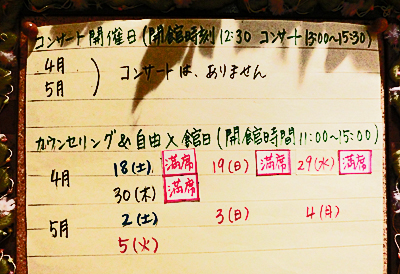 コンサート開催日(開館時刻12:30 コンサート13:00〜15:30)
4月
5月
コンサートは、ありません
カウンセリング&自由入館日(開館時間11:00〜15:00)
4月 18(土) 満席 19(日) 満席 29(水) 満席
30(木) 満席
5月 2(土) 3(日) 4(月)
5(火)